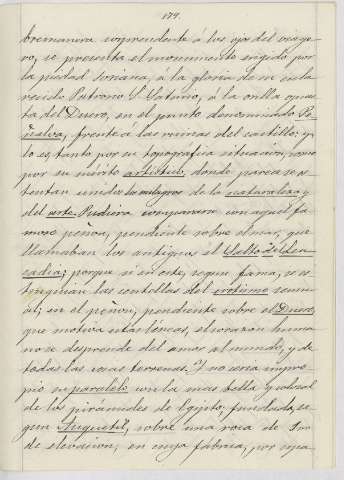 179.
bremanera sorprendente á los ojos del viage-
ro, se presenta el monumento erigido por
la piedad Soriana, á la gloria de su escla-
recido Patrono S. Saturio, á la orilla opues-
ta del Duero, en el punto denominado Pe-
ñalva, frente á las ruinas del castillo; y
lo es, tanto por su topográfica situacion, como
por su mérito artístico, donde parece se os-
tentan unidos los milagros de la naturaleza y
del arte. Pudiera compararse con aquel fa-
moso peñon, pendiente sobre el mar, que
llamaban los antiguos el Salto de Leu-
cadia; porque si en este, segun fama, se es-
tinguian las centellas del erotismo sensu-
al; en el peñon, pendiente sobre el Duero,
que motiva estas líneas, el corazon huma-
no se desprende del amor al mundo, y de
todas las cosas terrenas. Y no seria impro-
pio su paralelo con la mas bella y colosal
de las pirámides de Egipto, fundada, se-
gun sobre una roca de
de elevacion, en cuya fábrica, por espa-